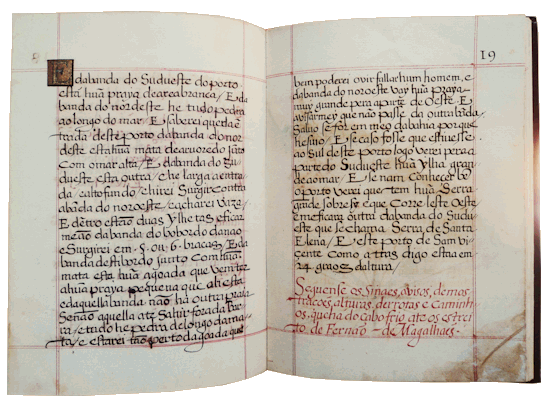 dabanda do Sudueste do porto
está huã praya de area branca / E da
banda do nordeste he tudo pedra
ao longo do mar / E saberei que da ẽ
trada deste porto da banda do nor
deste está huã mata de aruoredo junto
Com o mar alta / E da banda do Su
dueste esta outra / e he larga a entra
da e alto fundo, e hirei Surgir contra
a banda do noroeste, e achareis vaza /
E dentro estão duas ylhetas, e ficar
me ão dabanda do bobordo da nao
e Surgirei em 5. ou 6. braças, E da
banda destibordo junto Com huã
mata está huã agoada que vem ter
a huã praya pequena que ahi está
e daquella banda não ha outra praya
Senão aquella até Sahir fora da bar
ra, e tudo he pedra de longo da ma
ta, e estarei tão perto da agoada que
19
bem poderei ovir fallar hum homem, e
da banda do noroeste vay huã praya
muy grande pera a parte de Oeste E
avisarmeey que não passe da outra bãda
Salvo se for em meo da bahia porque
he sujo / E se caso fosse que estiuesse
ao Sul deste porto logo verei pera a
parte do Sudueste huã ylha gran
de ao mar, E se nam Conheçer bẽ
o porto verei que tem huã Serra
grande sobre sĩ e que Corre leste Oeste
e me ficara outra da banda do Sudu
este que se chama Serra de Santa
Elena / E este porto de Sam Vi
cente como a tras digo esta em
24 graos d altura /
Seguense os Sinaes, avisos, demos
trações, alturas, derrotas e Caminh
os, que ha do Cabo frio atè os estrei
to de Fernão – de Magalhaẽs.